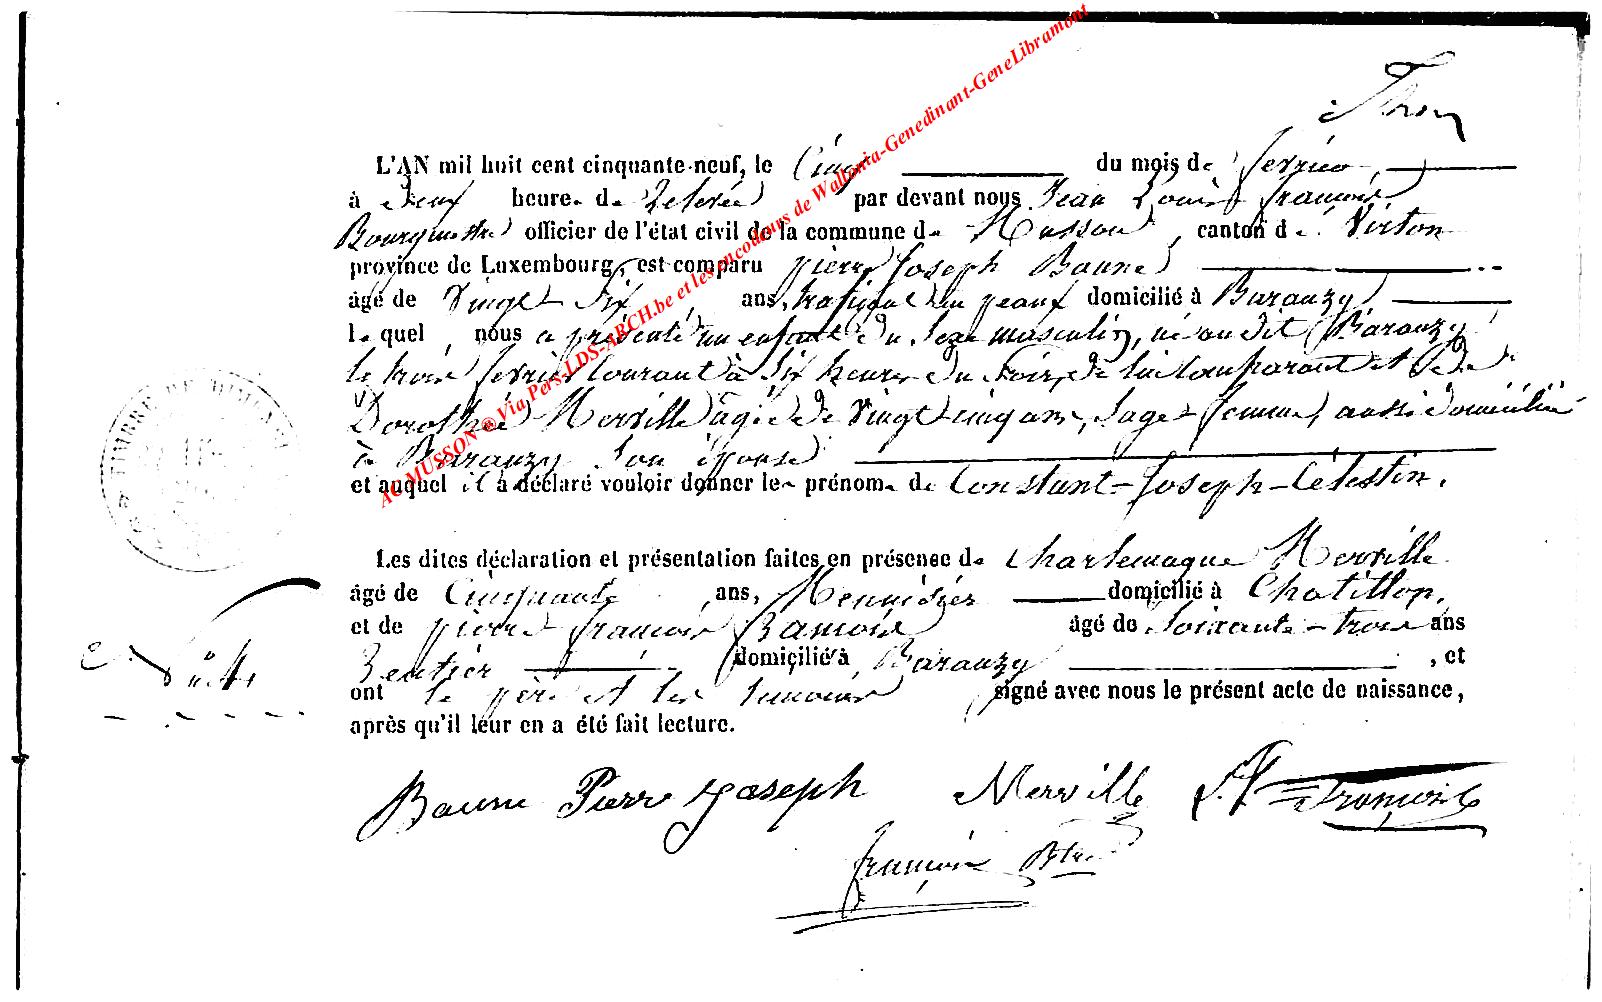 AC MUSSON ® Via Pers-LDS-ARCH.be et les encodeurs de Wallonia-Genedinant-GeneLibramont
L'AN mil huit cent cinquante-neuf, le Cinq du mois de fevrier,
à deux heures de Relevée par devant nous Jean Louis françois
Bourgmestre officier de l'état civil de la commune de Musson, canton de Virton
province de Luxembourg, est comparu pierre Joseph Baune
âgé de Vingt Six ans, trafiquant en peaux domicilié à Baranzy,
lequel, nous a présenté un enfant du Sexe masculin, né au dit Baranzy
le trois fevrier Courant à Six heures du Soir, de lui Comparant et de
Dorothée Merville âgée de Vingt cinq ans, Sage femme, aussi domiciliée
à Baranzy Son épouse
et auquel il a déclaré vouloir donner les prénoms de Constant-Joseph-Célestin.
Les dites déclaration et présentation faites en présence de Charlemagne Merville
âgé de Cinquante ans, Menuisier domicilié à Chatillon,
et de pierre françois âgé de Soixante-trois ans
Rentier domicilié à Baranzy, et
ont le père et les temoins signé avec nous le présent acte de naissance,
après qu'il leur en a été fait lecture.
Baune Pierre Joseph Merville françois
françois